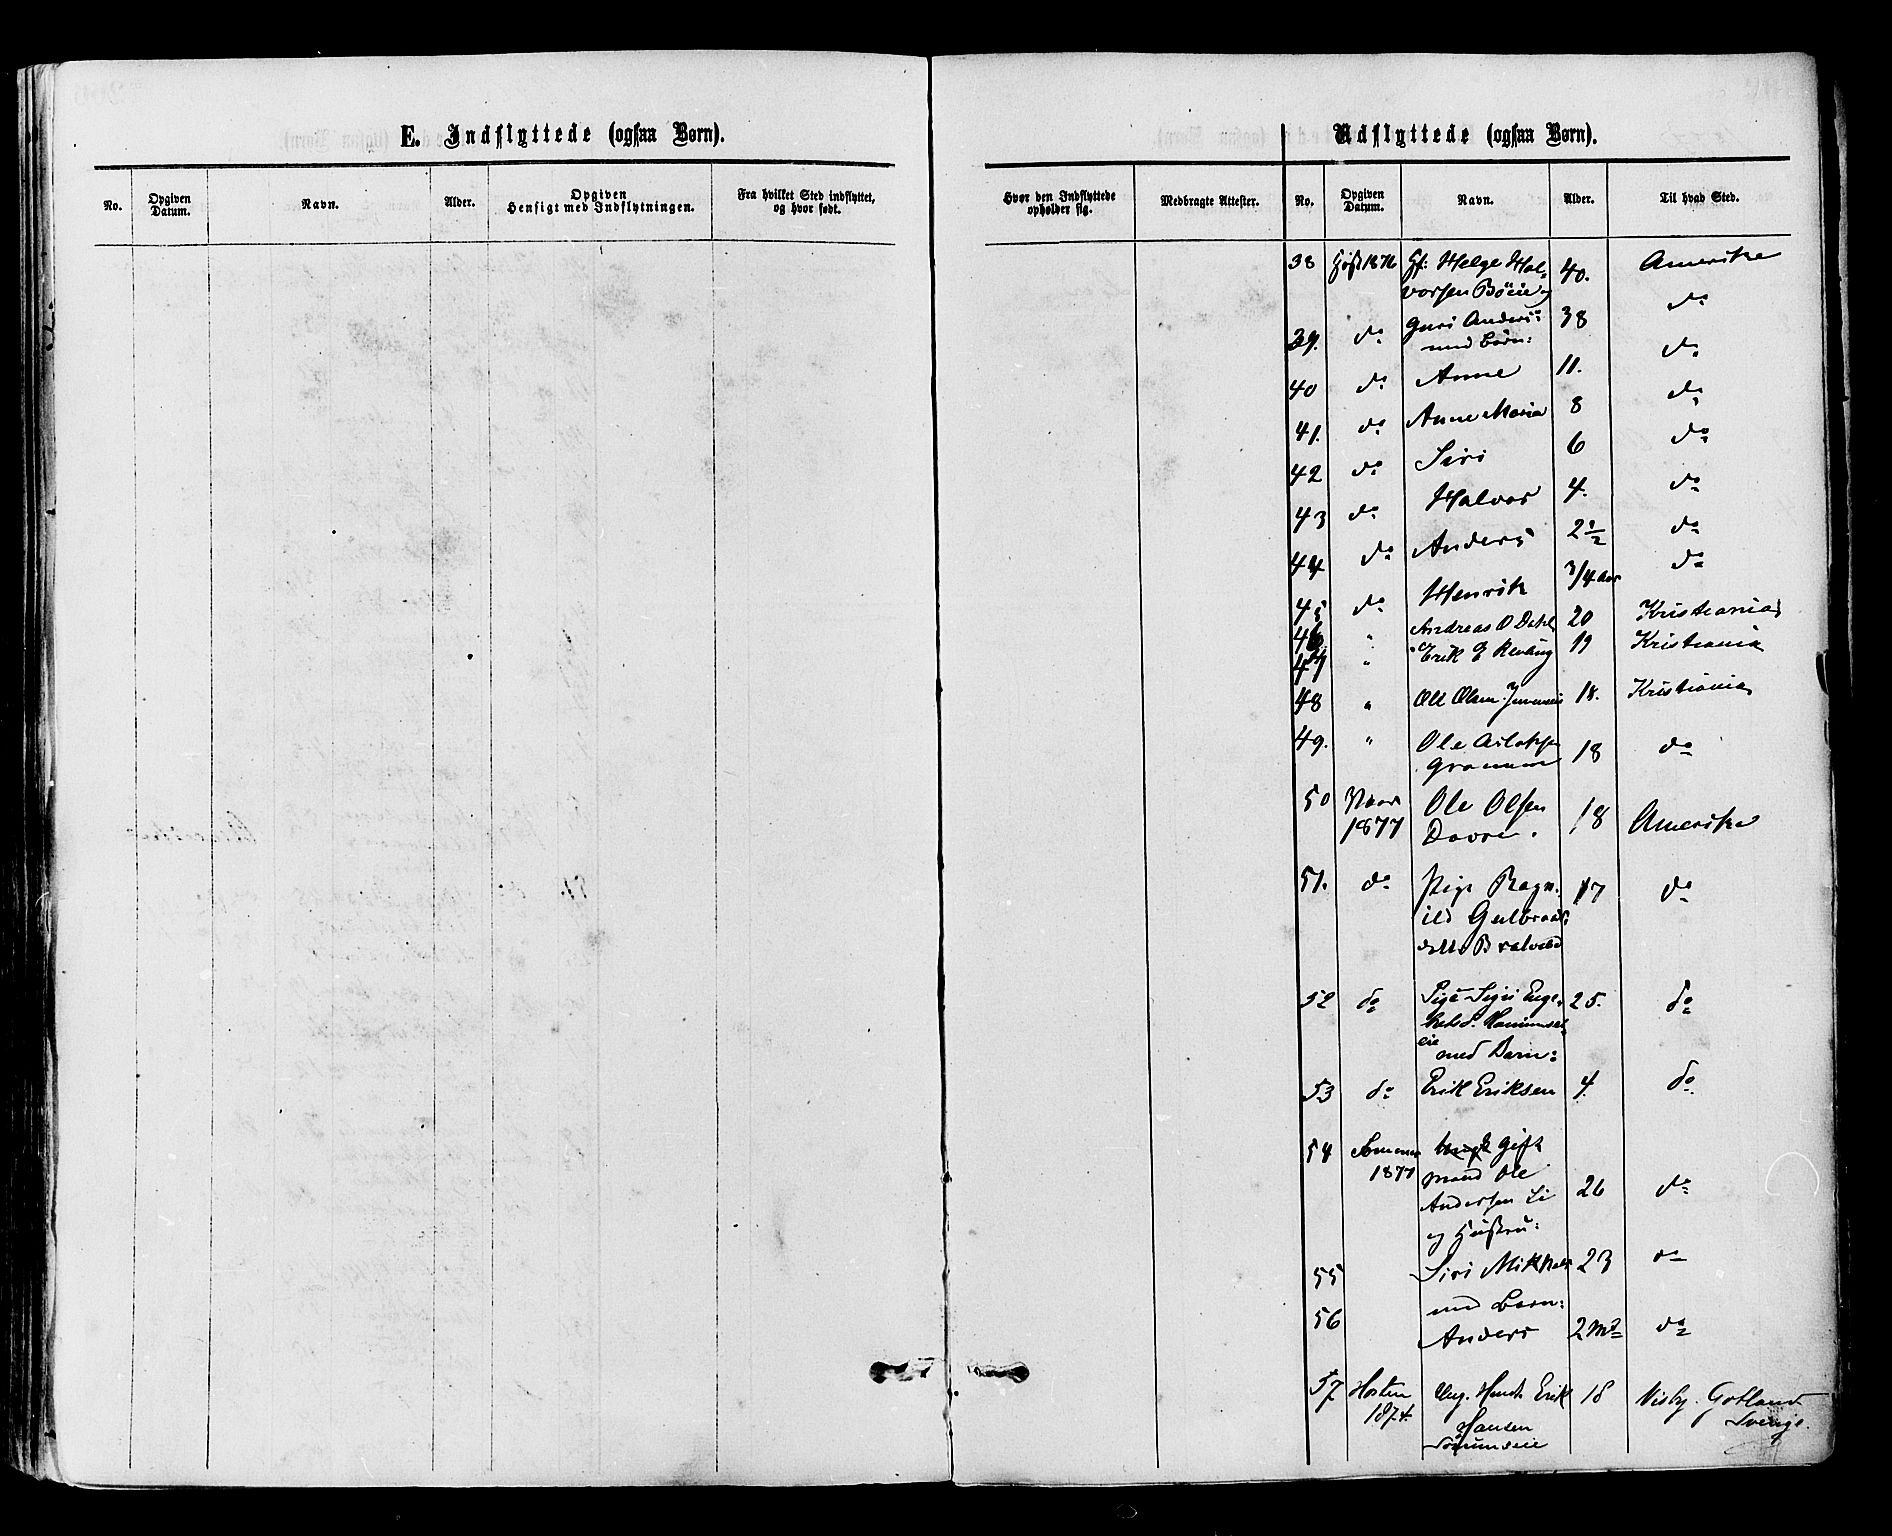 E. Indflyttede (ogsaa Børn).
Udflyttede (ogsaa Børn).
No. Opgiven Datum. Navn. Alder. Opgiven Hensigt med Indflytningen. Fra hvilket Sted indflyttet, og hvor født.
Hvor den Indflyttede opholder sig. Medbragte Attester. No. Opgiven Datum. Navn. Alder. Til hvad Sted.
38 Høst 1876 Gf: Helge Hal= 40. Amerika
vorsen Böeie og
39. do Guri Anders: 38 do
med Børn:
40 do Anne 11. do
41. do Anne Maria 8 do
42 do Siri 6 do
43 do Halvor 4. do
44 do Anders 2 1/2 do
45 do Henrik 3/4 aar do
46 " Andreas O Dahl 20 Kristiania
47 " Erik E 19 Kristiania
48 " Ole Olsen 18. Kristiania
49. " Ole Aslaksen 18 do
50 Vaar Ole Olsen 18 Amerika
1877 Dovre.
51. do Pige Ragn= 17 do
ild Gulbrands=
datter Bratvold
52 do Pige Sigri Enge= 25. do
eie med Barn:
53 do Erik Eriksen 4. do
54 Sommer Gift
1877 mand Ole
Andersen Li 26 do
og Hustru:
55 Siri Mikkels 23 do
med Barn:
56 Anders 2 Md do
57 Høsten Ung. Erik 18 Visby. Gotland
1874. Hansen Sverige.